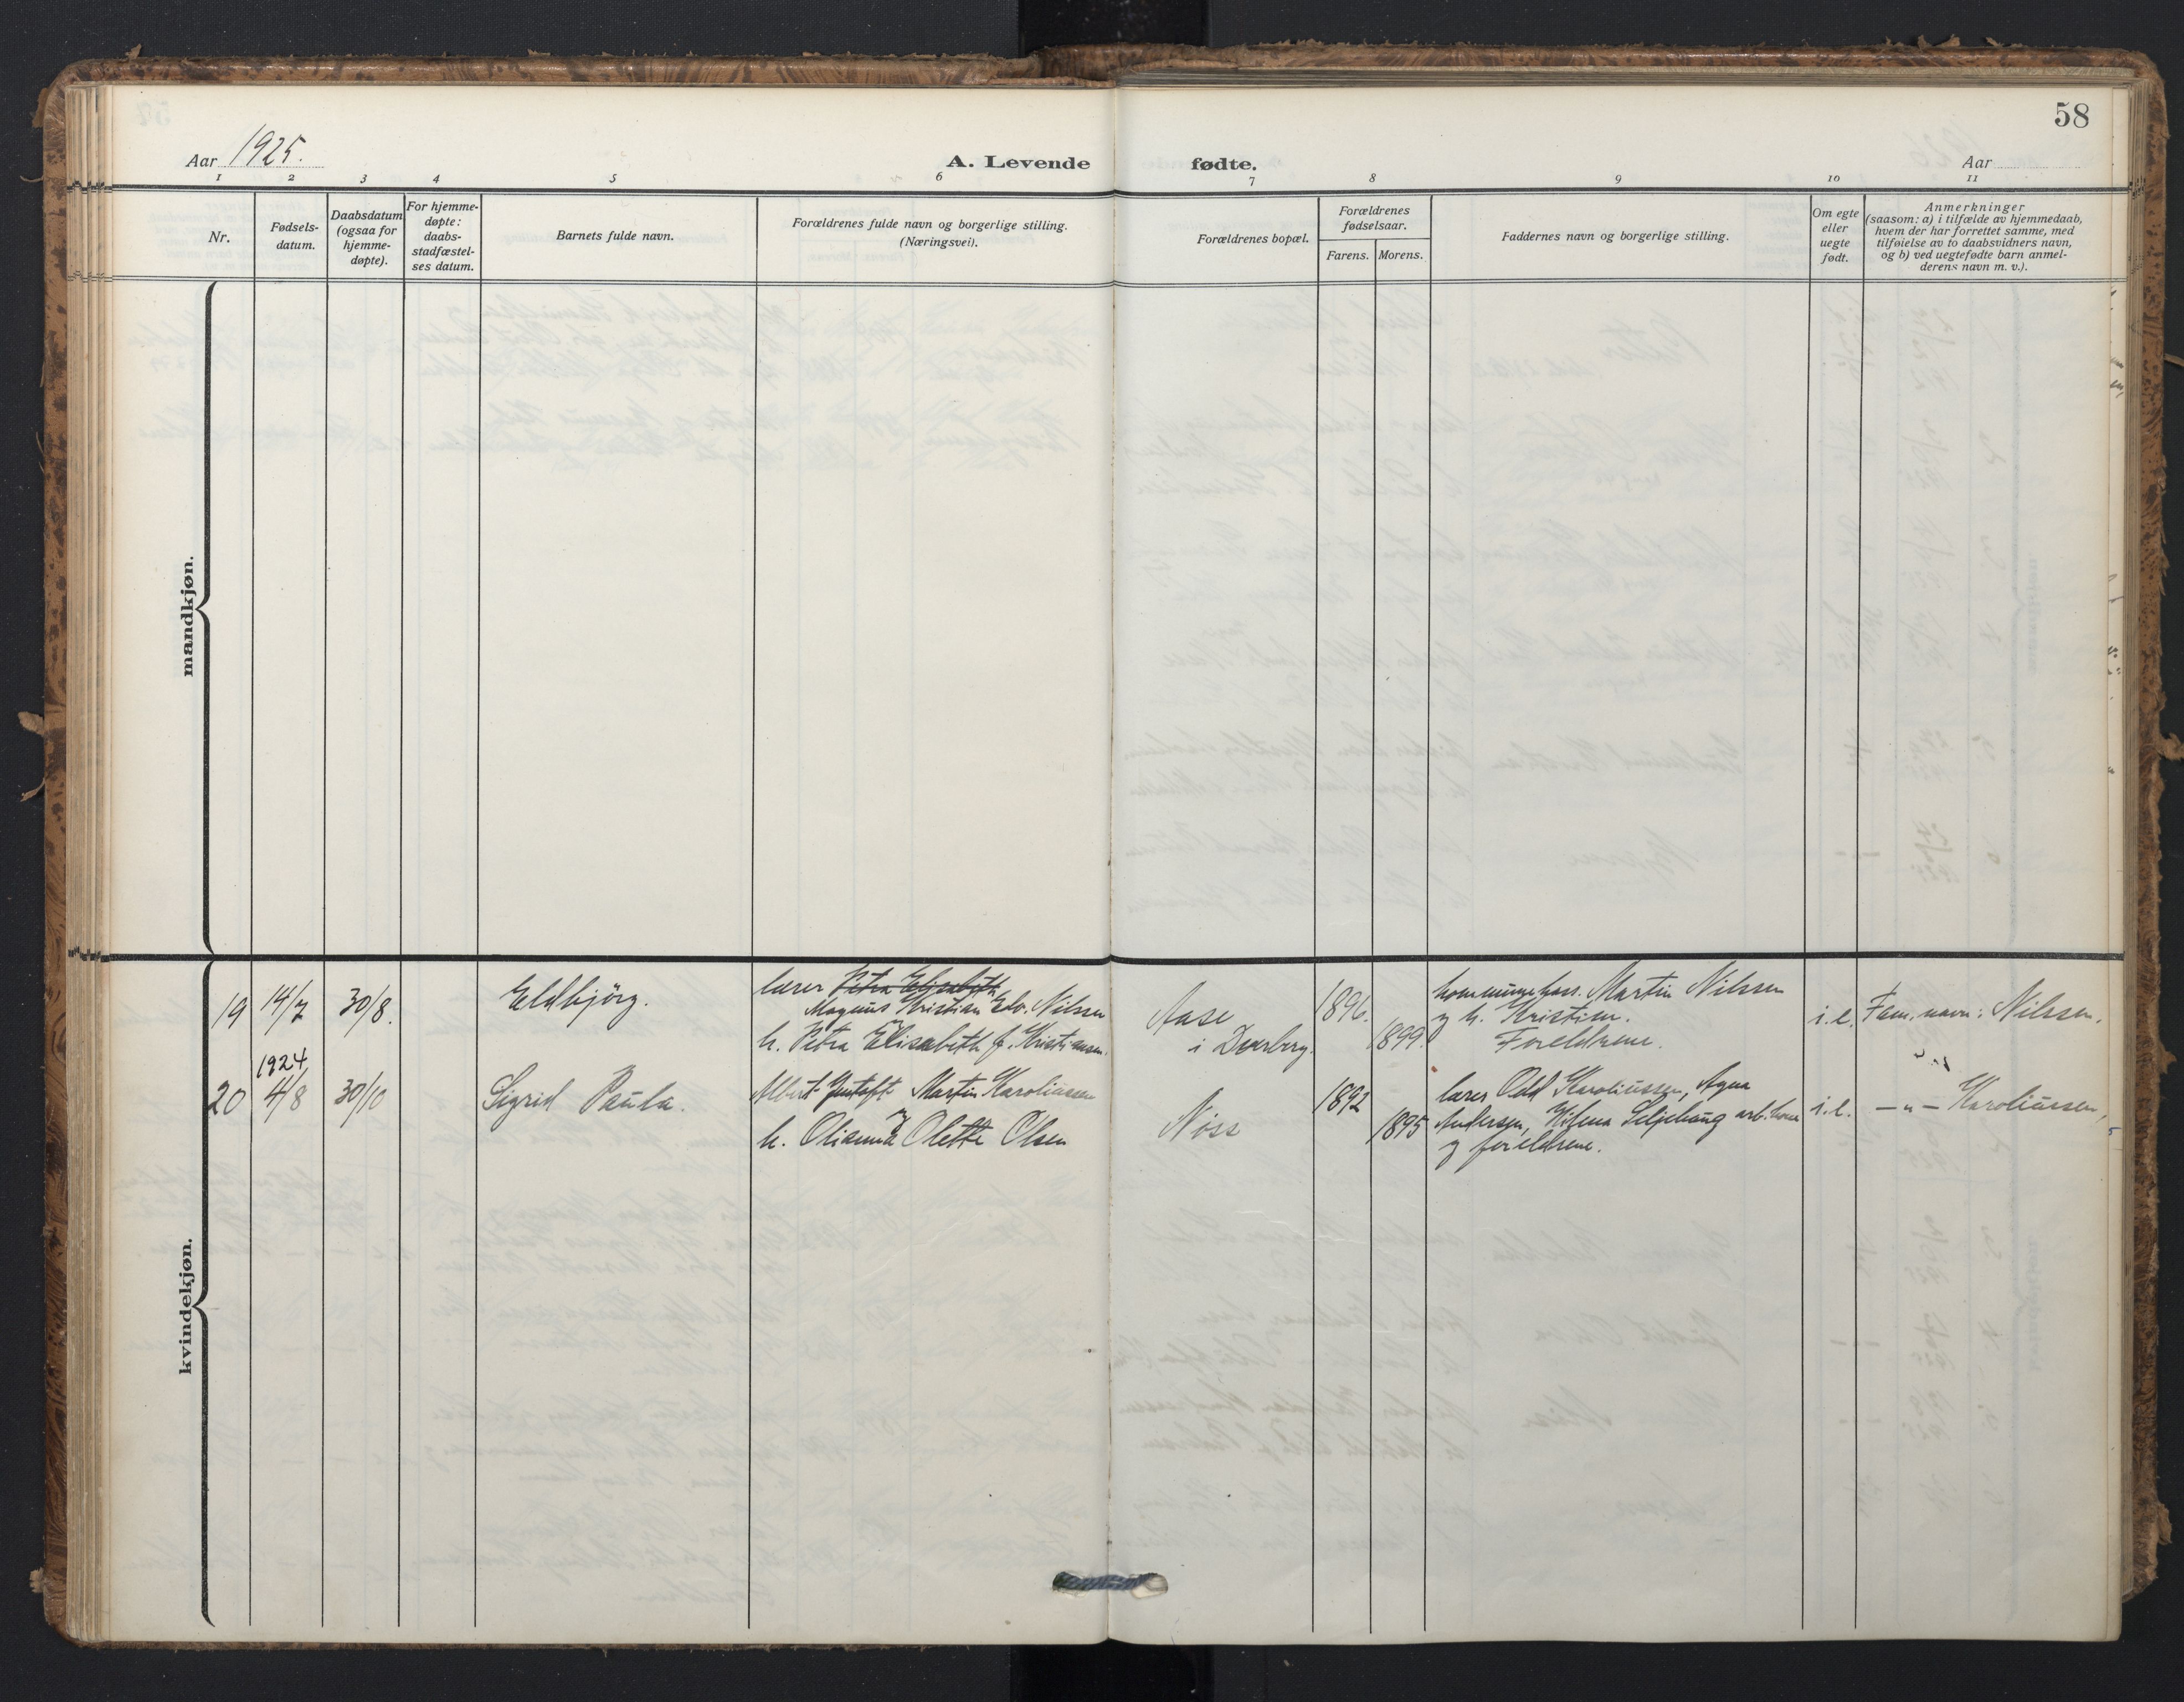 58
Aar 1925.
A. Levende fødte.
Aar
1 2 3 4 5 6 7 8 9 10 11
Nr.
Fødsels-
datum.
Daabsdatum
(ogsaa for
hjemme-
døpte).
For hjemme-
døpte:
daabs-
stadfæstel-
ses datum.
Barnets fulde navn.
Forældrenes fulde navn og borgerlige stilling.
(Næringsvei).
Forældrenes bopæl.
Forældrenes
fødselsaar.
Farens. Morens.
Faddernes navn og borgerlige stilling.
Om egte
eller
uegte
født.
Anmerkninger
(saasom: a) i tilfælde av hjemmedaab,
hvem der har forrettet samme, med
tilføielse av to daabsvidners navn,
og b) ved uegtefødte barn anmel-
derens navn m. v.).
mandkjøn.
kvindekjøn.
19 14/7 30/8. Eldbjörg.
lærer Petra Elisabeth
Magnus Kristian Edv. Nilssen
h. Petra Elisabeth f. Kristiansen.
Aase
i Dverberg.
1896.
1899.
kommunekass. Martin Nilssen
og h. Kristine.
Foreldrene.
i.e. Fam. navn: Nilssen.
1924
20 4/8 30/10 Sigrid Paula.
Albert Gustaft Martin Karoliussen
h. Olianna Olette Olsen
Nöss
1892
1895
lærer Odd Karoliussen, Agna
Andersen, Helena Seljehaug arb. kone
og foreldrene.
i.e. -"- Karoliussen,